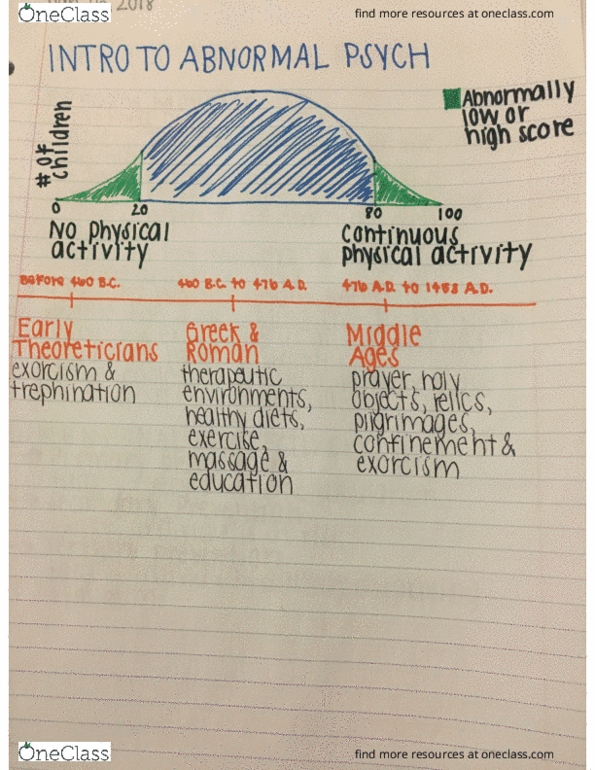 OneClass
find more resources at oneclass.com
2018
INTRO TO ABNORMAL PSYCH
# of
children
Abnormally
low or
high score
0 20 80 100
No physical
activity
continuous
physical activity
BEFORE 460 B.C. 460 B.C. to 476 A.D. 476 A.D. to 1453 A.D.
Early
Theoreticians
exorcism &
trephination
Greek &
Roman
therapeutic
environments,
healthy diets,
exercise,
massage &
education
Middle
Ages
prayer, holy
objects, relics,
pilgrimages,
confinement &
exorcism
OneClass
find more resources at oneclass.com